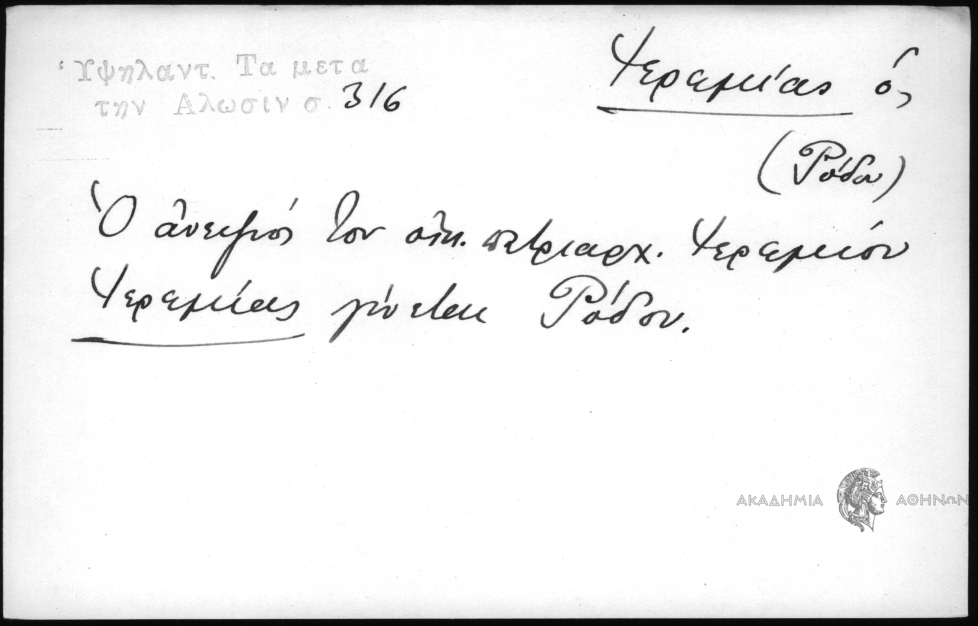 Ὑψηλαντ. Τα μετα
την Αλωσιν σ. 316
Ἱερεμίας ὁ,
(Ῥόδου)
Ὁ ἀνεψιός του οἰκ. πατριαρχ. Ἱερεμίου
Ἱερεμίας γίνεται Ῥόδου.
ΑΚΑΔΗΜΙΑ ΑΘΗΝΩΝ